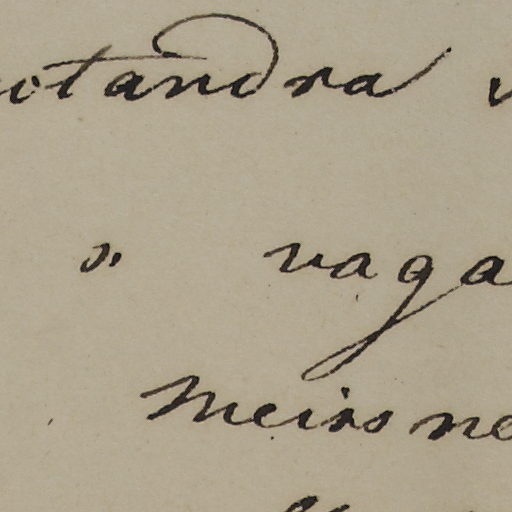 otandra v
". vaga
Meissne